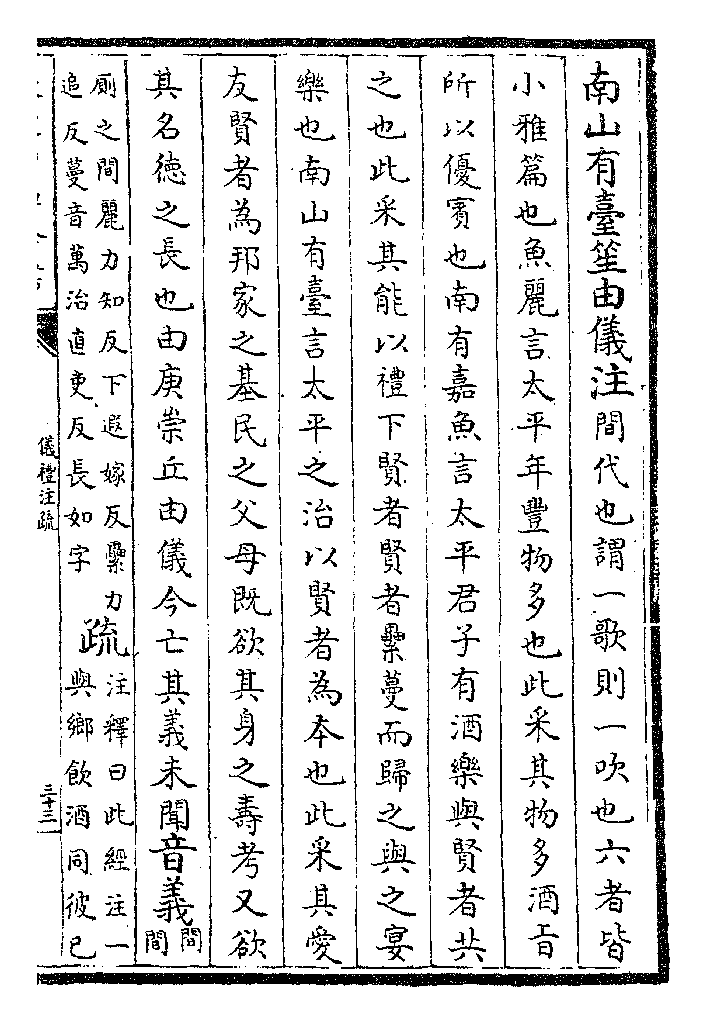 南山有臺笙由儀注間代也謂一歌則一吹也六者皆
小雅篇也魚麗言太平年豐物多也此采其物多酒旨
所以優賓也南有嘉魚言太平君子有酒樂與賢者共
之也此采其能以禮下賢者賢者纍蔓而歸之與之宴
樂也南山有臺言太平之治以賢者為本也此采其愛
友賢者為邦家之基民之父母既欲其身之壽考又欲
其名德之長也由庚崇丘由儀今亡其義未聞音義間間
廁之間麗力知反下遐嫁反纍力
追反蔓音萬治直吏反長如字
疏注釋曰此經注一
與鄉飲酒同彼已
儀禮注疏
三十三